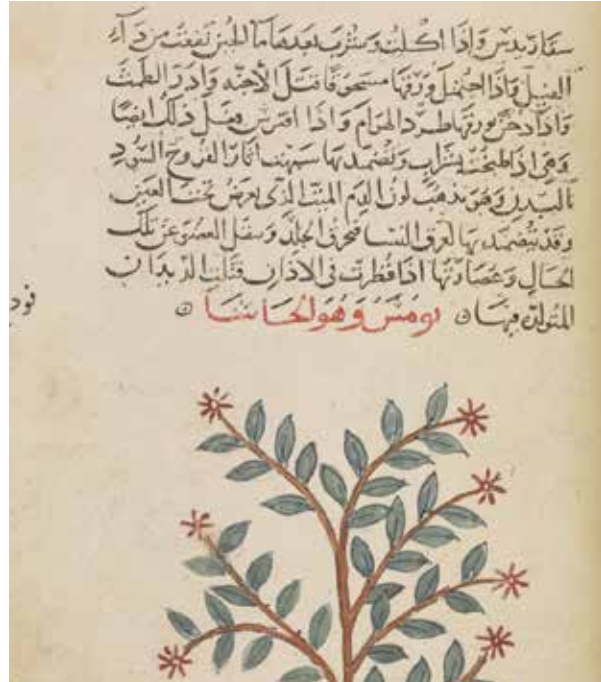 سقارىدىس واذا اكلت وشرب بعدها ما الجبن نفعت من دآء
الفيل واذا احتمل ورقها مسحوقا قتل الاجنه وادر الطمث
واذا دخن بورقها طرد الهوام واذا افترش فعل ذلك ايضا
وهى اذا طبخت بشراب وتضمد بها سهف اثار القروح السود
بالبدن وهو يذهب لون الدم الميت الذى يعرض تحت العين
وقد يتضمد بها لعرق النسا فتحرق الجلد وسقل العضو عن تلك
الحال وعصارتها اذا قطرت فى الاذان قتلت الديدان
المتولده فيها ثومس وهو الحاشا
فود